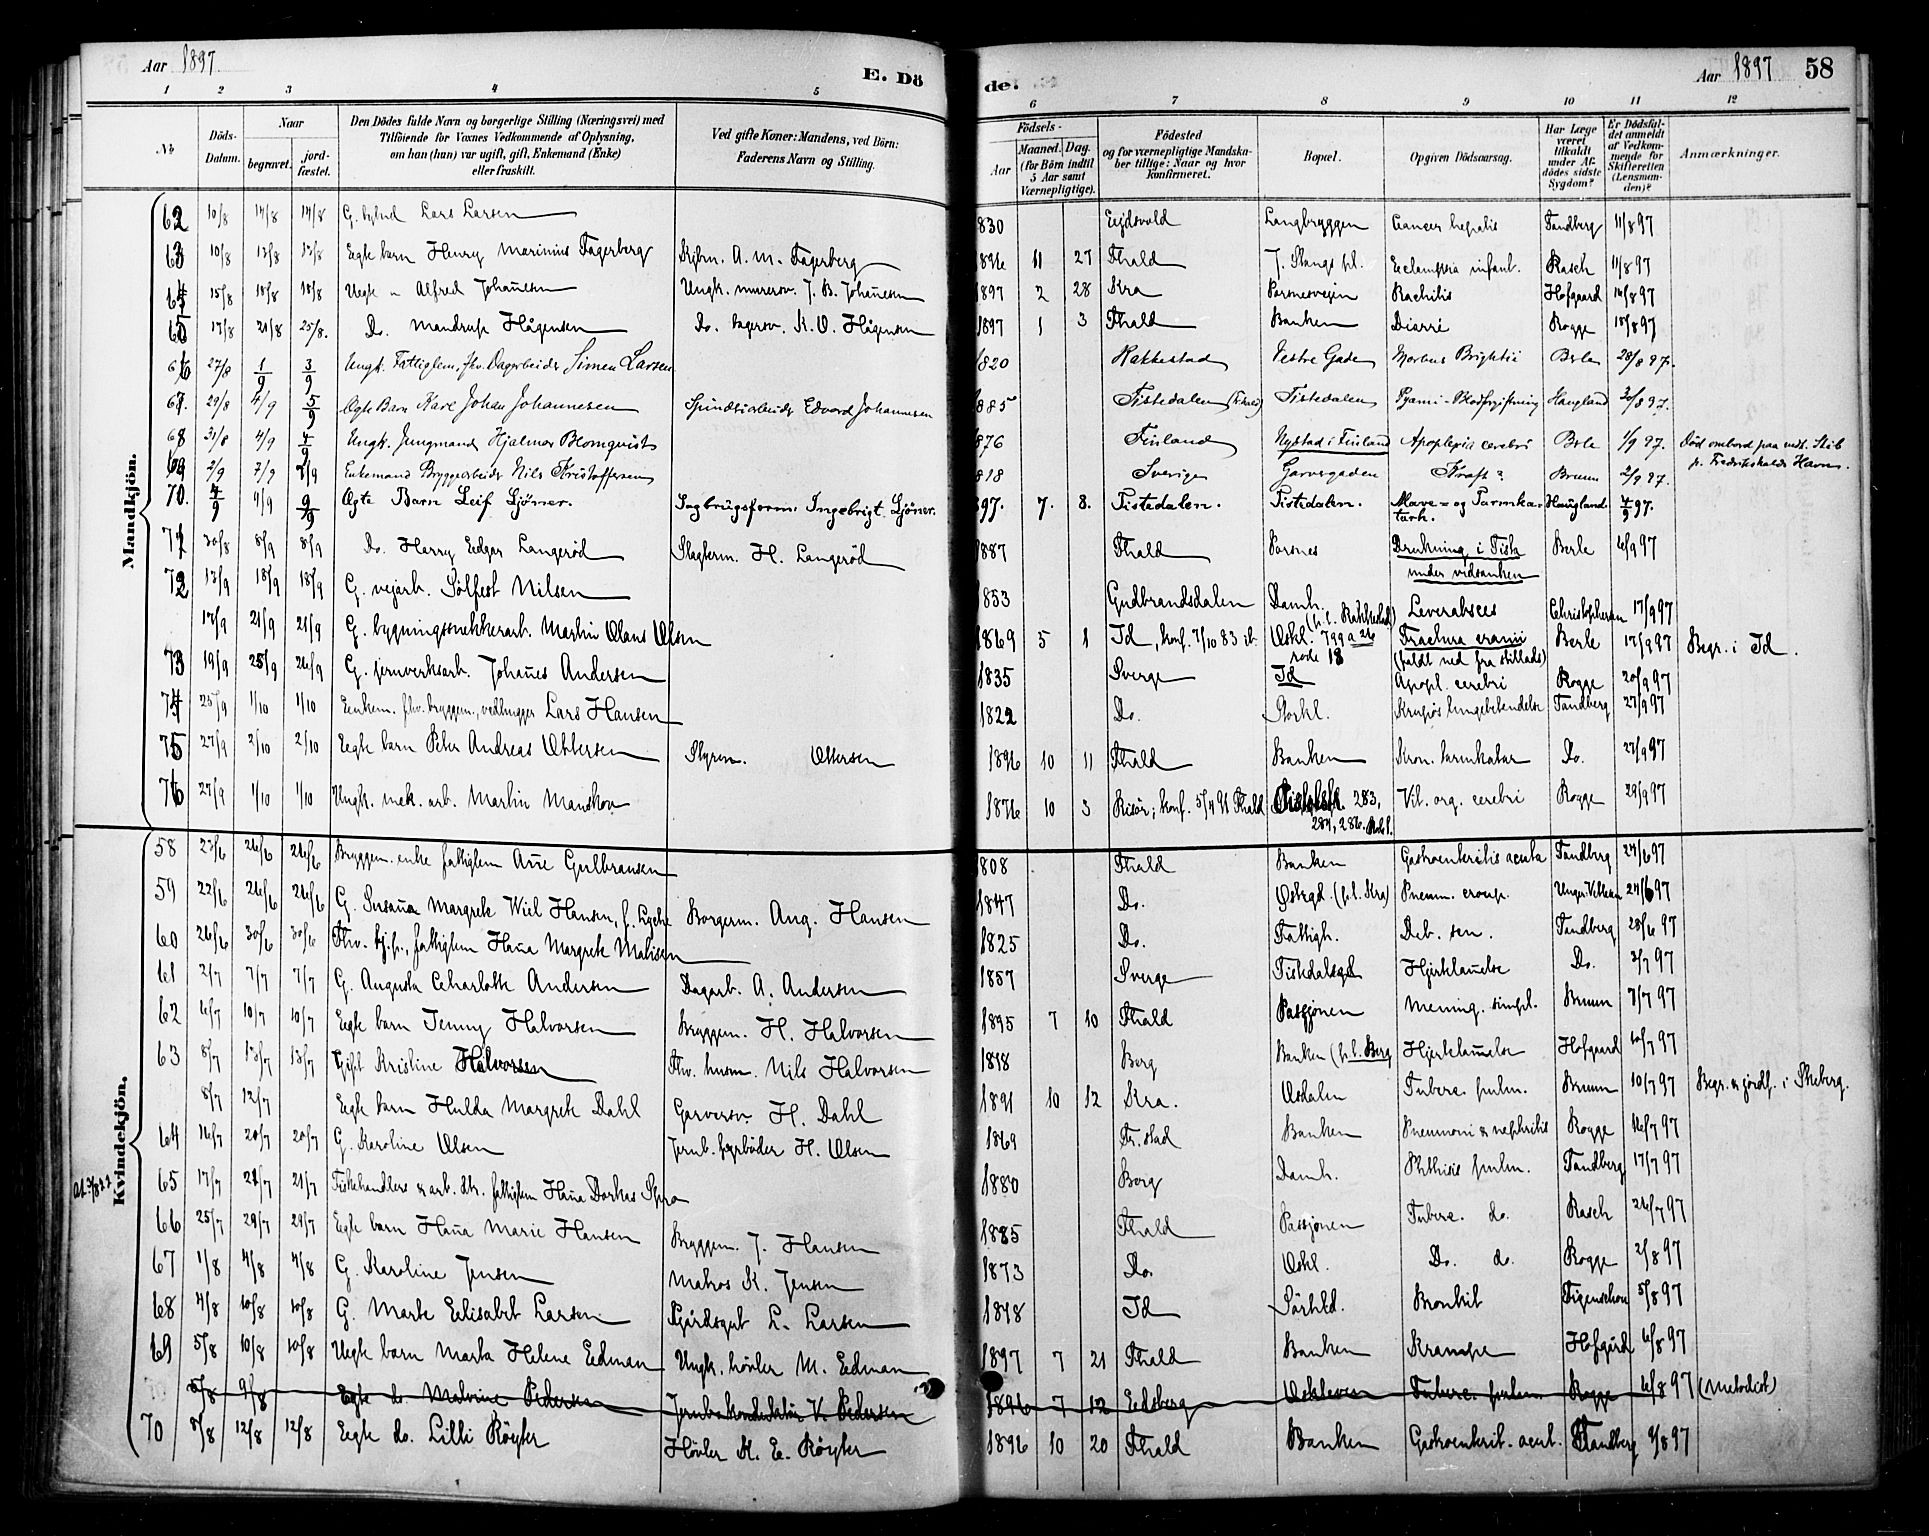 Aar 1897. E. Dö de. Aar 1897 58
1 2 3 4 5 6 7 8 9 10 11 12
No Döds-Datum. Naar begravet. jord-fæstet. Den Dödes fulde Navn og borgerlige Stilling (Næringsvei) med Tilföiende for Voxnes Vedkommende af Oplysning, om han (hun) var ugift, gift, Enkemand (Enke) eller fraskilt. Ved gifte Koner: Mandens, ved Börn: Faderens Navn og Stilling. Födsels- Aar Maaned. Dag. (for Börn indtil 5 Aar samt Værnepligtige). Födested og for værnepligtige Mandskaber tillige: Naar og hvor konfirmeret. Bopæl. Opgiven Dödsaarsag. Har Læge været tilkaldt under Afdödes sidste Sygdom? Er Dödsfaldet anmeldt af Vedkommende for Skifteretten (Lensmanden)? Anmærkninger.
Mandkjön.
62 10/8 14/8 14/8 G. Lars Larsen 830 Eidsvold Langbryggen Cancer hepatis Tandberg 11/8 97
63 10/8 13/8 13/8 Egte barn Henry Marinius Fagerberg Kjbm. A. M. Fagerberg 1896 11 27 Fhald J. Stangs pl. Eclampsia infant. Rasch 11/8 97
64 15/8 18/8 18/8 Uegte " Alfred Johannesen Ungk. murersv. J. B. Johannesen 1897 2 28 Kra Porsnesveien Rachitis Hofgaard 16/8 97
65 17/8 21/8 25/8. Do. Mandrup Hågensen Do. bagersv. K. O. Hågensen 1897 1 3 Fhald Banken Diarré Rogge 18/8 97
66 27/8 1/9 3/9 Ungk. Fattiglem, fhv. Dagarbeider Simen Larsen 1820 Rakkestad Vestre Gade Morbus Brightii Berle 28/8 97.
67. 29/8 4/9 5/9 Ægte Barn Kare Johan Johannesen Spinderiarbeider Edvard Johannesen 1885 Tistedalen (Fhald) Tistedalen Pyæmi-Blodforgiftning Haugland 30/8 97.
68 31/8 4/9 4/9 Ungk. Jungmand Hjalmar Blomqvist 876 Finland Nystad i Finland Apoplexia cerebri Berle 1/9 97. Död ombord paa Skib p. Fredrikshalds Havn.
69 2/9 7/9 2/9 Enkemand Bryggearbeider Nils Kristoffersen 818 Sverige Garvergaden Kræft? Bruun 2/9 97.
70. 4/9 4/9 9/9 Ægte Barn Leif Ljöner. Sagbrugsform. Ingebrigt Ljöner. 897. 7. 8. Tistedalen. Tistedalen. Mave- og Tarmkatarh. Haugland. 4/9 97.
71 30/8 8/9 8/9 Do. Harry Edgar Langeröd Slagterm. H. Langeröd 1887 Fhald Porsnes Drukning i Tista under vidsanken Berle 6/9 97
72 13/9 18/9 18/9 G. vejarb. Sölfest Nilsen 1853 Gudbrandsdalen Damh. (h.l. Rakkestad) Leverabsces Christophersen 17/9 97
17/9 21/9 21/9 G. bygningssnekkerarb. Martin Olaus Olsen 1869 5 1 Id, konf. 7/10 83 ib. Oskl. 799 a 26 rode 18 Fractura cranii (faldt ned fra stillads) Berle 17/9 97 Begr. i Id.
73 19/9 25/9 26/9 G. jernverksarb. Johanes Andersen 1835 Sverge Id Apopl. cerebri Rogge 20/9 97
74 25/9 1/10 1/10 Enkem. fhv. bryggem., vedhugger Lars Hansen 1822 Do. Storkl. Krupös lungebetendelse Tandberg 27/9 97
75 27/9 2/10 2/10 Egte barn Peter Andreas Ottersen Styrm. Ottersen 1896 10 11 Fhald Banken Kron. tarmkatar Do. 27/9 97
76 27/9 1/10 1/10 Ungk. mek. arb. Martin Manskov 1876 10 3 Risör; konf. 5/4 91 Fhald 283, 284, 286. Vit. org. cerebri Rogge 29/9 97
Kvindekjön.
58 23/6 26/6 26/6 Bryggem. enke fattiglem Ane Gulbransen 1808 Fhald Banken Gastroenteritis acuta Tandberg 24/6 97
59 22/6 26/6 26/6 G. Susanna Margrete Wiel Hansen, f. Lyche Borgerm. Aug. Hansen 1847 Do. Ostegd. (h.l. Kra) Pneum. croup. Unger-Vetlesen 24/6 97
60 26/6 30/6 30/6 Fhv. tj.p., fattiglem Hana Margrete Matisen 1825 Do. Fattigh. Deb. sen. Tandberg 28/6 97
61 2/7 7/7 7/7 G. Augusta Charlotte Andersen Dagarb. A. Andersen 1857 Sverge Tistedalsgd Hjertelamelse Do. 3/7 97
62 6/7 10/7 10/7 Egte barn Jenny Halvorsen Bryggem. H. Halvorsen 1895 7 10 Fhald Passjonen Mening. simpl. Bruun 7/7 97
63 8/7 13/7 13/7 Gift Kristine Halvorsen Fhv. husm. Nils Halvorsen 1818 Berg Banken (h.l. Berg Hjertelamelse Hofgaard 10/7 97
8/7 12/7 Egte barn Hulda Margrete Dahl Garversv. H. Dahl 1891 10 12 Kra. Osdalen Tuberc. pulm. Bruun 10/7 97 Begr. & jordf. i Skeberg.
64 16/7 20/7 20/7 G. Karoline Olsen Jernb. fyrböder H. Olsen 1869 Fr.stad Banken Pneumoni & nephritis Rogge 16/7 97
At. 3/8 22 65 17/7 21/7 21/7 Fiskehandlers & arb. dtr. fattiglem Hana Dorkas Spro 1880 Borg Damh. Phthisis pulm. Tandberg 17/7 97
66 25/7 29/7 29/7 Egte barn Hana Marie Hansen Bryggem. J. Hansen 1885 Fhald Passjonen Tuberc. do. Rasch 26/7 97
67 1/8 4/8 4/8 G. Karoline Jensen Matros K. Jensen 1873 Do. Oskl. Do. do. Rogge 2/8 97
68 4/8 10/8 10/8 G. Marte Elisabet Larsen Gårdsgut L. Larsen 1848 Id Sörhld. Bronkit Figenschou 5/8 97
69 5/8 10/8 10/8 Uegte barn Marta Helene Edman Ungk. hövler M. Edman 1897 7 21 Fhald Banken Krampe Hofgård 6/8 97
5/8 9/8 Egte do. Malvine Pedersen Jernb. konduktör K. Pedersen 1896 7 12 Edsberg Oskleven Tuberc. pulm. Rogge 6/8 97 (Metodist)
70 8/8 12/8 12/8 Egte do. Lilli Röyter Hövler K. E. Röyter 1896 10 20 Fhald Banken Gastroenterit. acut. Tandberg 9/8 97